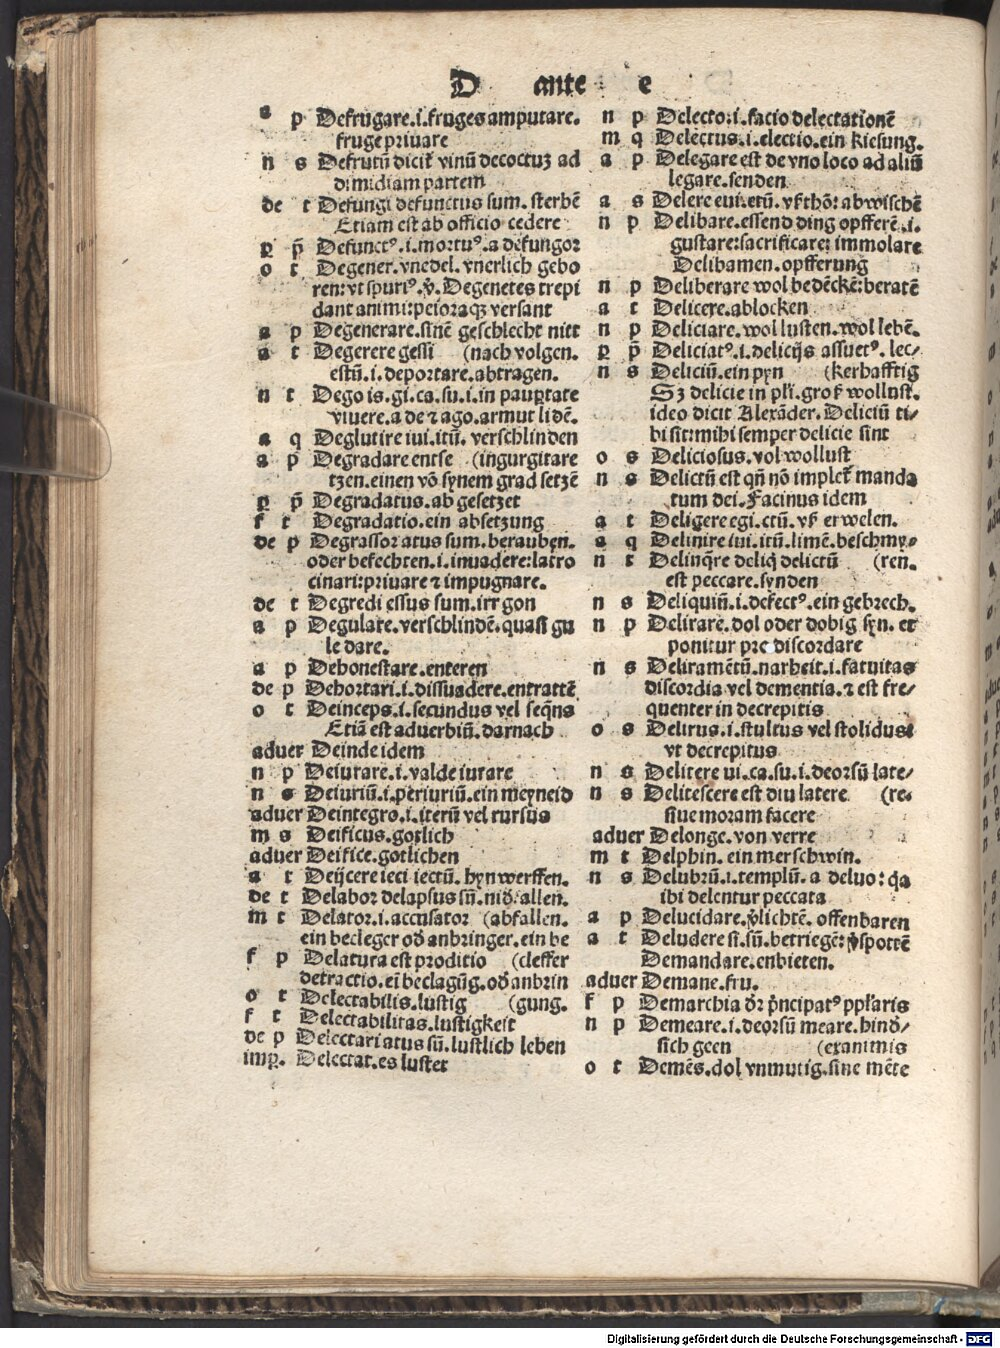 D ante e
a p Defrugare.i.fruges amputare.
fruge priuare
n s Defrutū dicit᷑ vinū decoctuꝫ ad
dimidiam partem
de t Defungi defunctus sum. sterbē
Etiam est ab officio cedere
ꝑ p̄ Defunctꝰ.i.mortuꝰ.a defungor
o t Degener.vnedel.vnerlich gebo
ren:vt spuriꝰ.v̄. Degenetes trepi
dant animi:peioraqꝫ versant
a p Degenerare.sinē geschlecht nitt
a t Degerere gessi (nach volgen.
estū.i.deportare.abtragen.
n t Dego is.gi.ca.su.i.in pauꝑtate
viuere.a de ⁊ ago.armut lidē.
a q Deglutire iui.itū. verschlinden
a p Degradare entse (ingurgitare
tzen.einen vō synem grad setzē
ꝑ p̄ Degradatus.ab gesetzet
f t Degradatio.ein absetzung
de p Degrassor atus sum.berauben.
oder befechten.i.inuadere:latro
cinari:priuare ⁊ impugnare.
de t Degredi essus sum.irr gon
a p Degulare.verschlindē.quasi gu
le dare.
a p Dehonestare.enteren
de p Dehortari.i.dissuadere.entrattē
o t Deinceps.i.secundus vel seq̄ns
Etiā est aduerbiū.darnach
aduer Deinde idem
n p Deiurare.i.valde iurare
n s Deiuriū.i.periuriū.ein meyneid
aduer Deintegro.i.iterū vel rursus
m s Deificus.gotlich
aduer Deifice.gotlichen
a t Deijcere ieci iectū. hyn werffen.
de t Delabor delapsus sū.nid᷑.allen.
m t Delator.i.accusator (abfallen.
ein becleger od᷑ anbringer.ein be
f p Delatura est proditio (cleffer
detractio.ei᷑ beclagūg.od᷑ anbrin
o t Delectabilis.lustig (gung.
f t Delectabilitas.lustigkeit
de p Delectari atus sū.lustlich leben
imꝑ. Delectat.es lustet
n p Delecto:i.facio delectationē
m q Delectus.i.electio.ein kiesung.
a p Delegare est de vno loco ad aliū
legare.senden
a s Delere eui.etū. vß thō: abwischē
n p Delibare.essend ding opfferē.i.
gustare:sacrificare: immolare
Delibamen.opfferung
n p Deliberare wol bedēckē:beratē
a t Delicere.ablocken
n p Deliciare.wol lusten.wol lebē.
ꝑ p̄ Deliciatꝰ.i.delicijs assuetꝰ. lec-
n s Deliciū.ein pyn (kerhafftig
Sꝫ delicie in pli᷑.grok wollust.
ideo dicit Alexāder. Deliciū ti-
bi sit:mihi semper delicie sint
o s Deliciosus.vol wollust
n s Delictū est qn̄ nō implet᷑ manda
tum dei.Facinus idem
a t Deligere egi.ctū. vß erwelen.
a q Delinire iui.itū.limē.beschmy-
n t Delinq̄re deliq̄ delictū (ren.
est peccare.synden
n s Deliquiū.i.defectꝰ.ein gebrech.
n p Delirare.dol oder dobig syn. et
ponitur pro discordare
n s Deliramētū.narheit.i.fatuitas
discordia vel dementia.⁊ est fre-
quenter in decrepitis
o s Delirus.i.stultus vel stolidus:
vt decrepitus
n s Delitere ui.ca.su.i.deorsū late-
n s Delitescere est diu latere (re:
siue moram facere
aduer Delonge.von verre
m t Delphin.ein merschwin.
n s Delubrū.i.templū.a deluo:q̄a
ibi delentur peccata
a p Delucidare.v̄lichtē.offenbaren
a t Deludere si.sū.betriegē:v̄spottē
Demandare.enbieten.
aduer Demane.fru.
f p Demarchia d᷑r p̄ncipatꝰ ppl̄aris
n p Demeare.i.deorsū meare.hind᷑-
sich geen (exanimis
o t Demēs.dol vnmutig.sine mēte
Digitalisierung gefördert durch die Deutsche Forschungsgemeinschaft - DFG